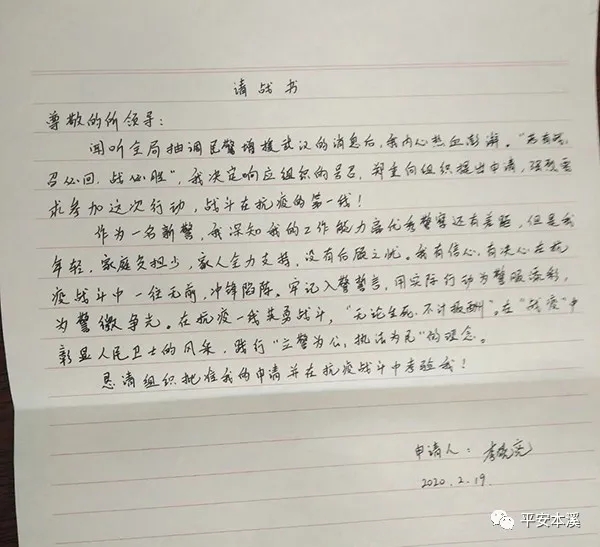 请战书
尊敬的所领导：
闻听全局抽调民警增援武汉的消息后，我内心热血澎湃。“若有战，
召必回，战必胜”，我决定响应组织的号召，郑重向组织提出申请，强烈要
求参加这次行动，战斗在抗疫的第一线！
作为一名新警，我深知我的工作能力离优秀警察还有差距，但是我
年轻，家庭负担少，家人全力支持，没有后顾之忧。我有信心，有决心在抗
疫战斗中一往无前，冲锋陷阵。牢记入警誓言，用实际行动为警服添彩，
为警徽争光。在抗疫一线英勇战斗，“无论生死，不计报酬”。在“战疫”中
彰显人民卫士的风采，践行“立警为公，执法为民”的理念。
恳请组织批准我的申请并在抗疫战斗中考验我！
申请人：李晓亮
2020.2.19.
平安本溪